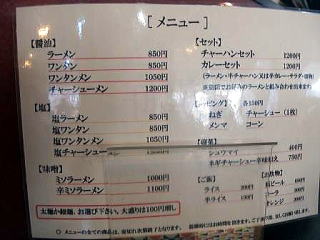 [ メニュー ]
【醤油】
ラーメン 850円
ワンタン 850円
ワンタンメン 1050円
チャーシューメン 1200円
【塩】
塩ラーメン 850円
塩ワンタン 850円
塩ワンタンメン 1050円
塩チャーシューメン
【味噌】
ミソラーメン 1000円
辛ミソラーメン 1100円
太麺か細麺、お選び下さい。大盛りは100円増し
【セット】
チャーハンセット 1200円
カレーセット 1200円
(ラーメン・半チャーハン又は半カレー・サラダ・
【トッピング】 各150円
ねぎ チャーシュー(1枚)
メンマ コーン
シュウマイ 400円
ネギチャーシュー 750円
【ご飯】
ライス
半ライス
【お飲物】
ビール
コーラ
オレンジ